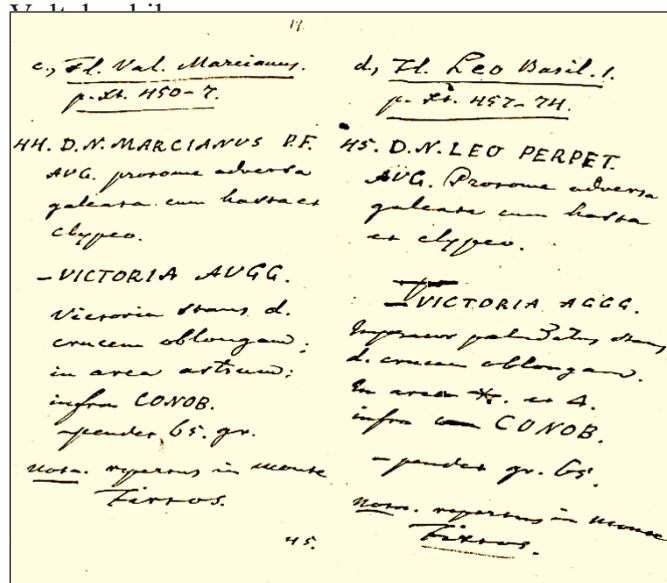 17.
c, Fl. Val. Marcianus.
p. Xt. 450-7.
44. D. N. MARCIANUS P. F.
AVG. prosome adversa
galeata cum hasta et
clypeo.
- VICTORIA AVGG.
Victoria stans d.
crucem oblongam;
in area astrum;
infra CONOB.
- pendet 65. gr.
Nota. repertus in monte
d, Fl. Leo Basil. I.
p. Xt. 457-74.
45. D. N. LEO PERPET.
AVG. Prosome adversa
galeata cum hasta
et clypeo.
- VICTORIA AGGG.
Imperator paludatus stans
d. crucem oblongam.
In area *. et Δ.
infra CONOB.
- pendet gr. 65.
Nota. repertus in monte
45.